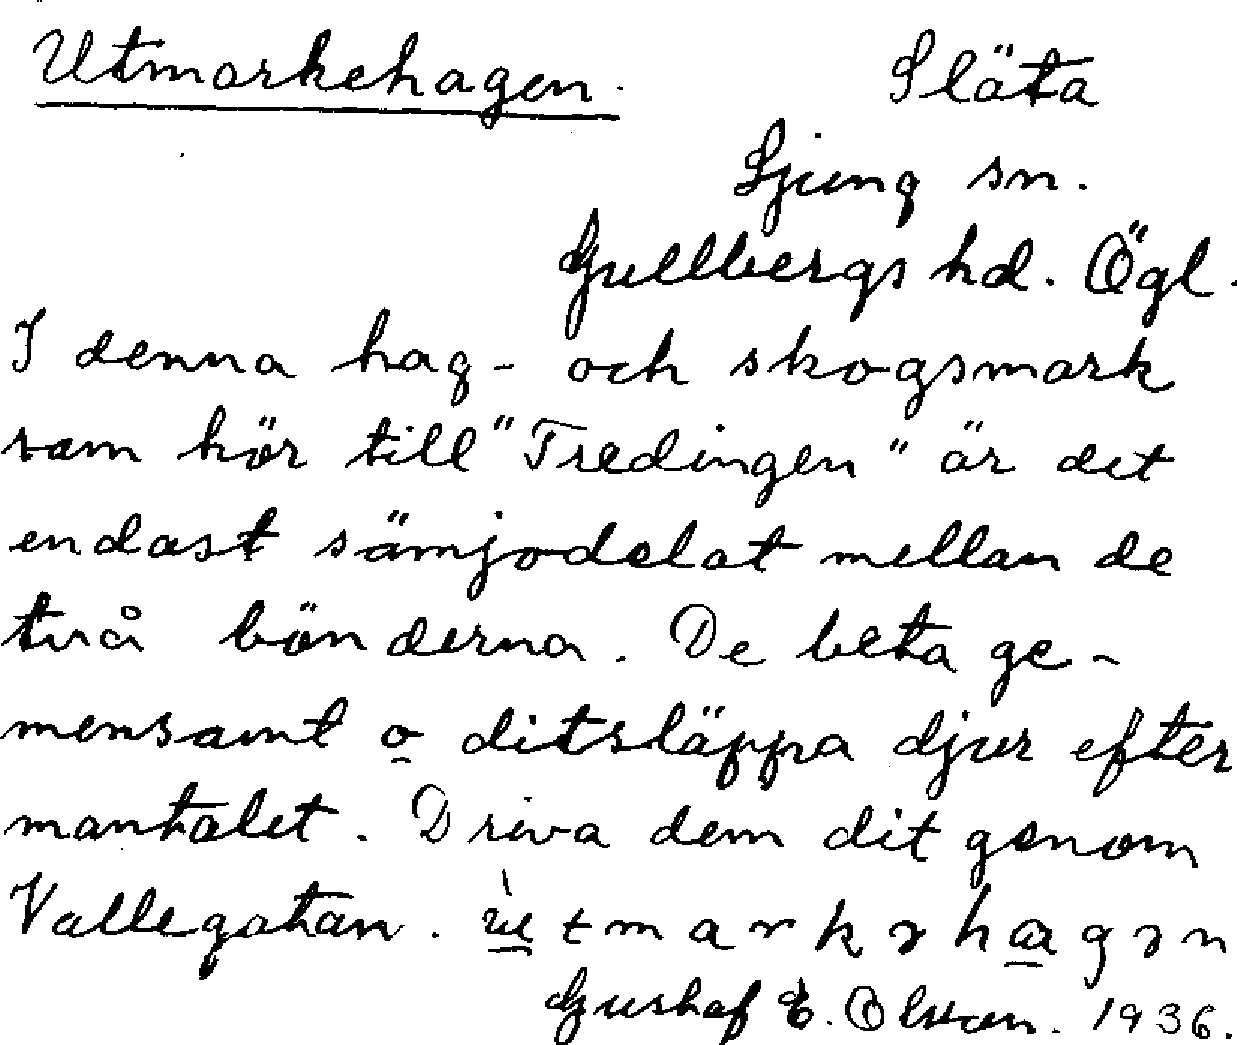 Utmarkehagen.
Släta
Ljung sn.
Gullbergs hd. Ögl.
I denna hag- och skogsmark
som hör till "Tredingen" är det
endast sämjodelat mellan de
två bönderna. De beta ge-
mensamt o ditsläppa djur efter
mantalet. Driva dem dit genom
Vallegatan. ùtmarkɘhagɘn
Gustaf E. Olsson. 1936.